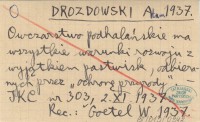 O DROZDOWSKI Adam 1937.
Owczarstwo podhalańskie ma
wszystkie warunki rozwoju z
wyjątkiem pastwisk, odbiera-
nych przez „ochronę przyrody"
JKC nr 303, 2.XI 1937.
Rec.: Goetel W. 1937.